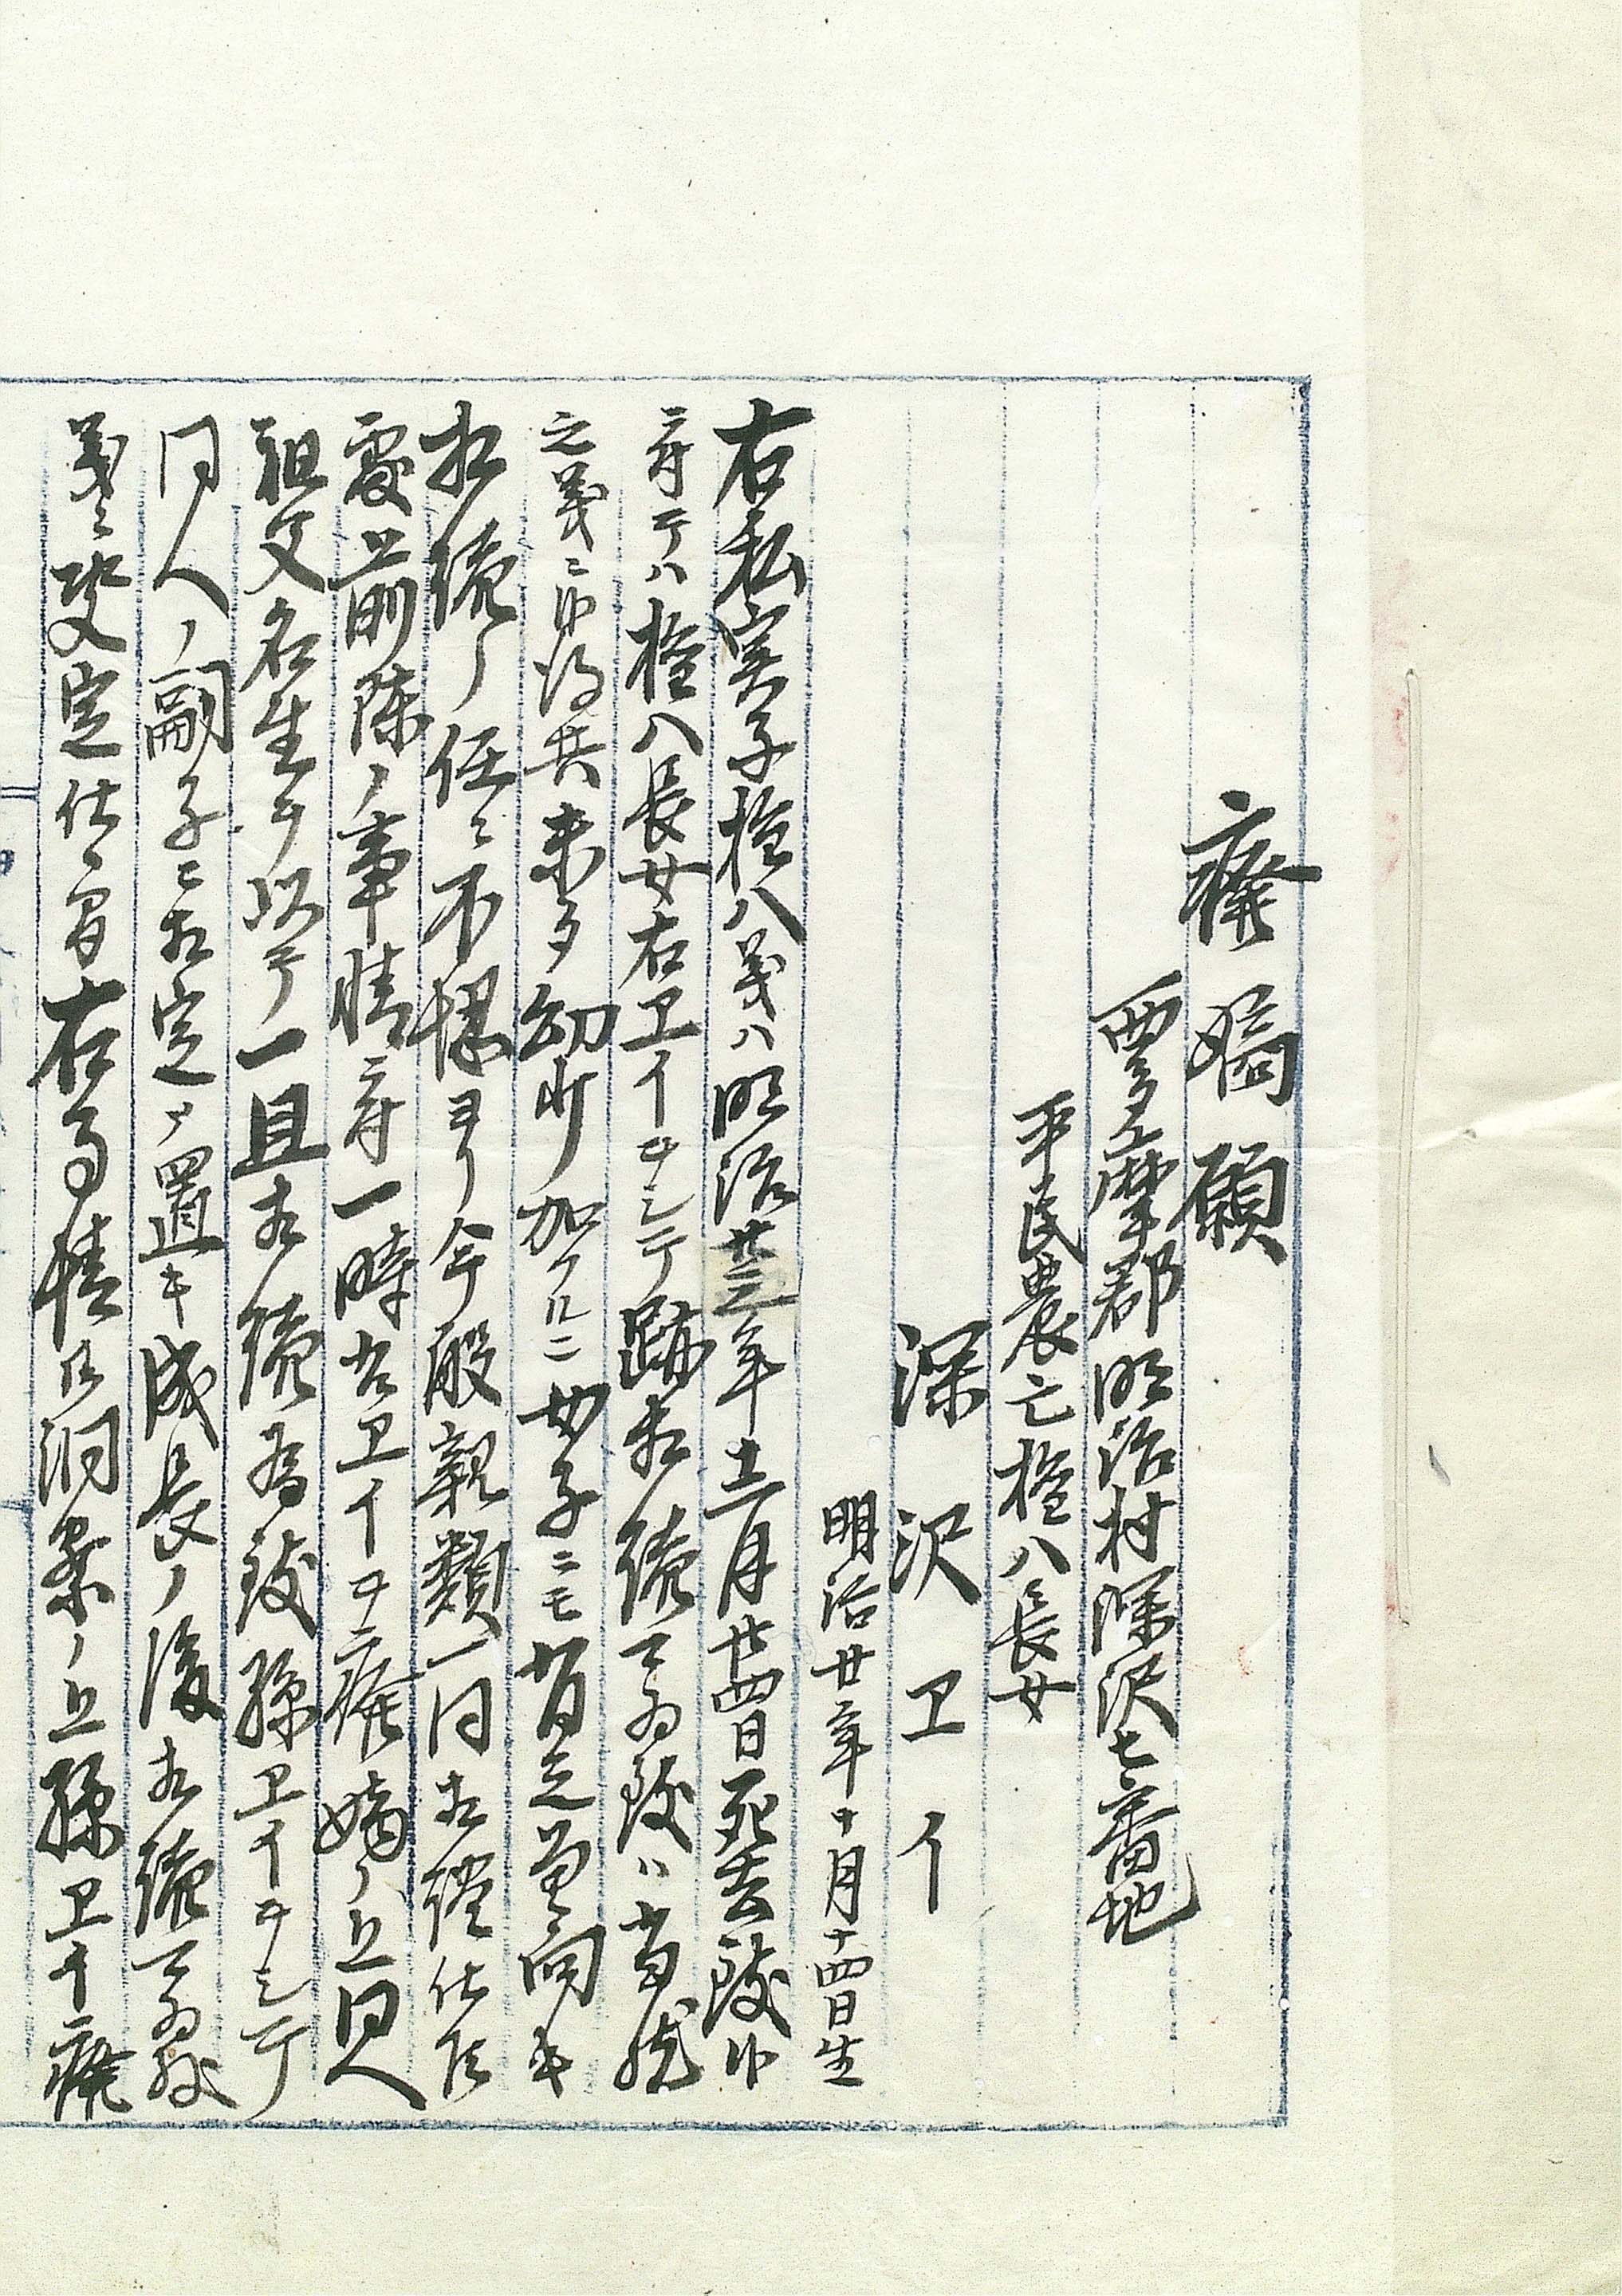 廃嫡願
西多摩郡明治村深沢七番地
平民農亡権八長女
深沢ヱイ
明治廿年十月十四日生
右私実子権八義ハ明治廿三年十二月廿四日死去致候
ニ付テハ権八長女右ヱイヲシテ跡相続可為致ハ当然
之義ニ候得共未タ幼少加フルニ女子ニモ有之曽向キ
相続ノ任ニ不堪ヨリ今般親類一同相談仕候
処前陳ノ事情ニ付一時右ヱイヲ廃嫡ノ上同人
祖父名生ヲ以テ一旦相続為致孫ヱイヲシテ
同人ノ嗣子ニ相定メ置キ成長ノ後相続可為致
義ニ熟定仕候間右事情御洞察ノ上孫ヱイ廃